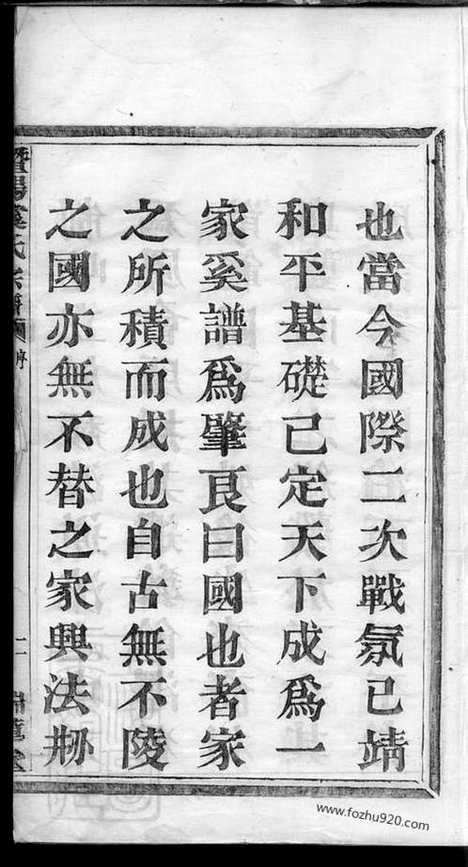 也當今國際二次戰氛已靖
和平基礎已定天下成爲一
家奚譜爲肇㫐曰國也者家
之所積而成也自古無不陵
之國亦無不替之家興法荆
暨陽奚氏宗譜
二
www.fozhu920.com